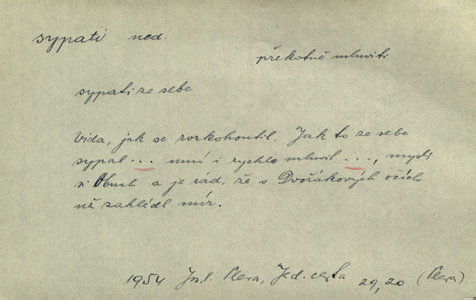 sypati ned.
překotně mluviti
sypati ze sebe
Vida, jak se rozkohoutil. Jak to ze sebe
sypal ... umí i rychle mluvit ..., myslí
si Obuch a je rád, že v Dvořákových očích
už zahlédl mír.
1954 Jos. Sleva, Jed. cesta 29,20 (Sleva)